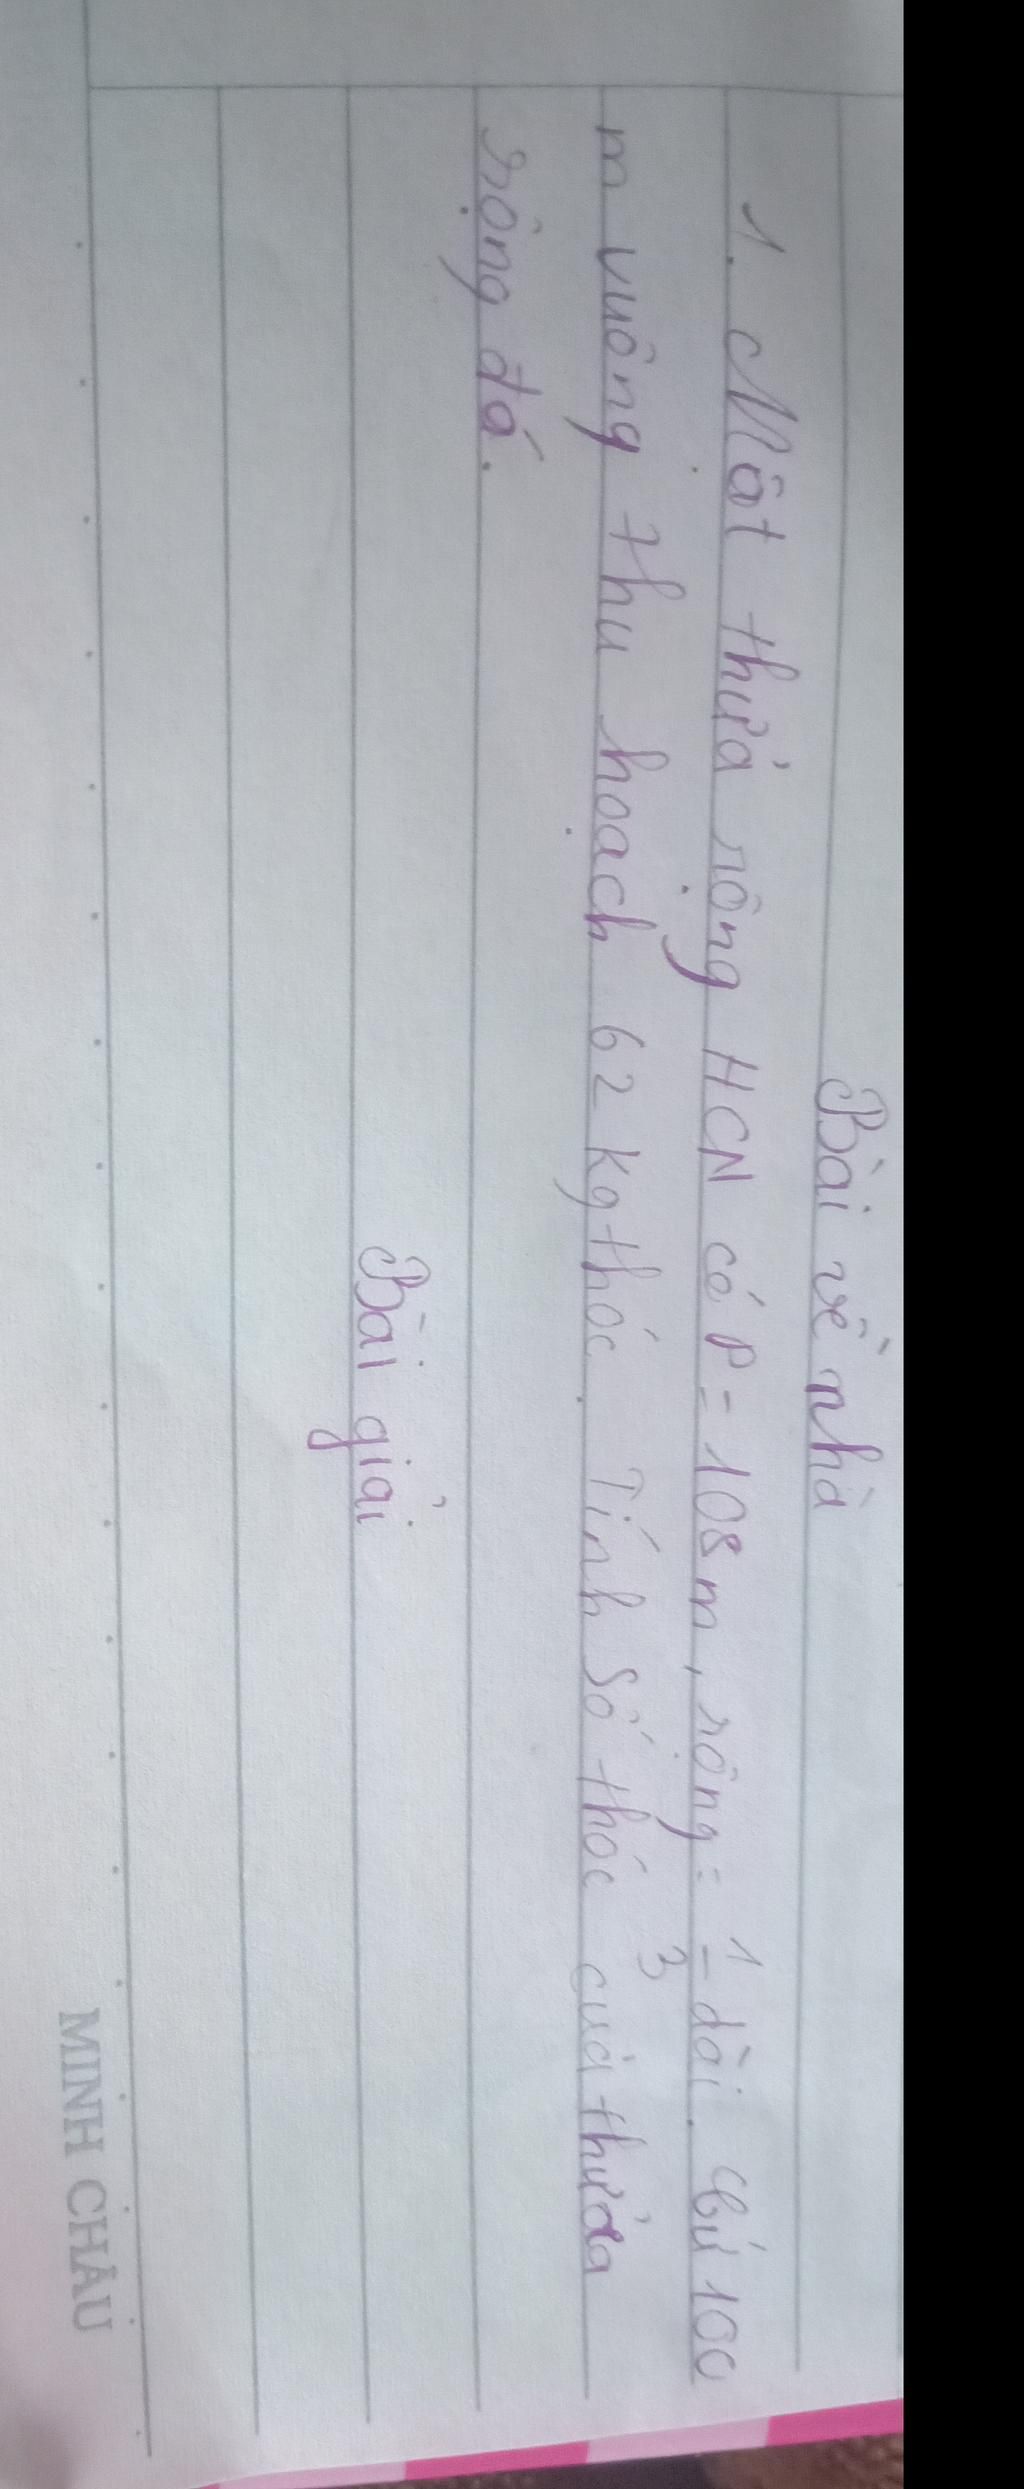 Bài về nhà
1. Một thửa rộng HCN có P = 108m, rộng = 1/3 dài. Cứ 100
m vuông thu hoạch 62 kg thóc. Tính số thóc của thửa
rộng đó.
Bài giải
MINH CHÂU